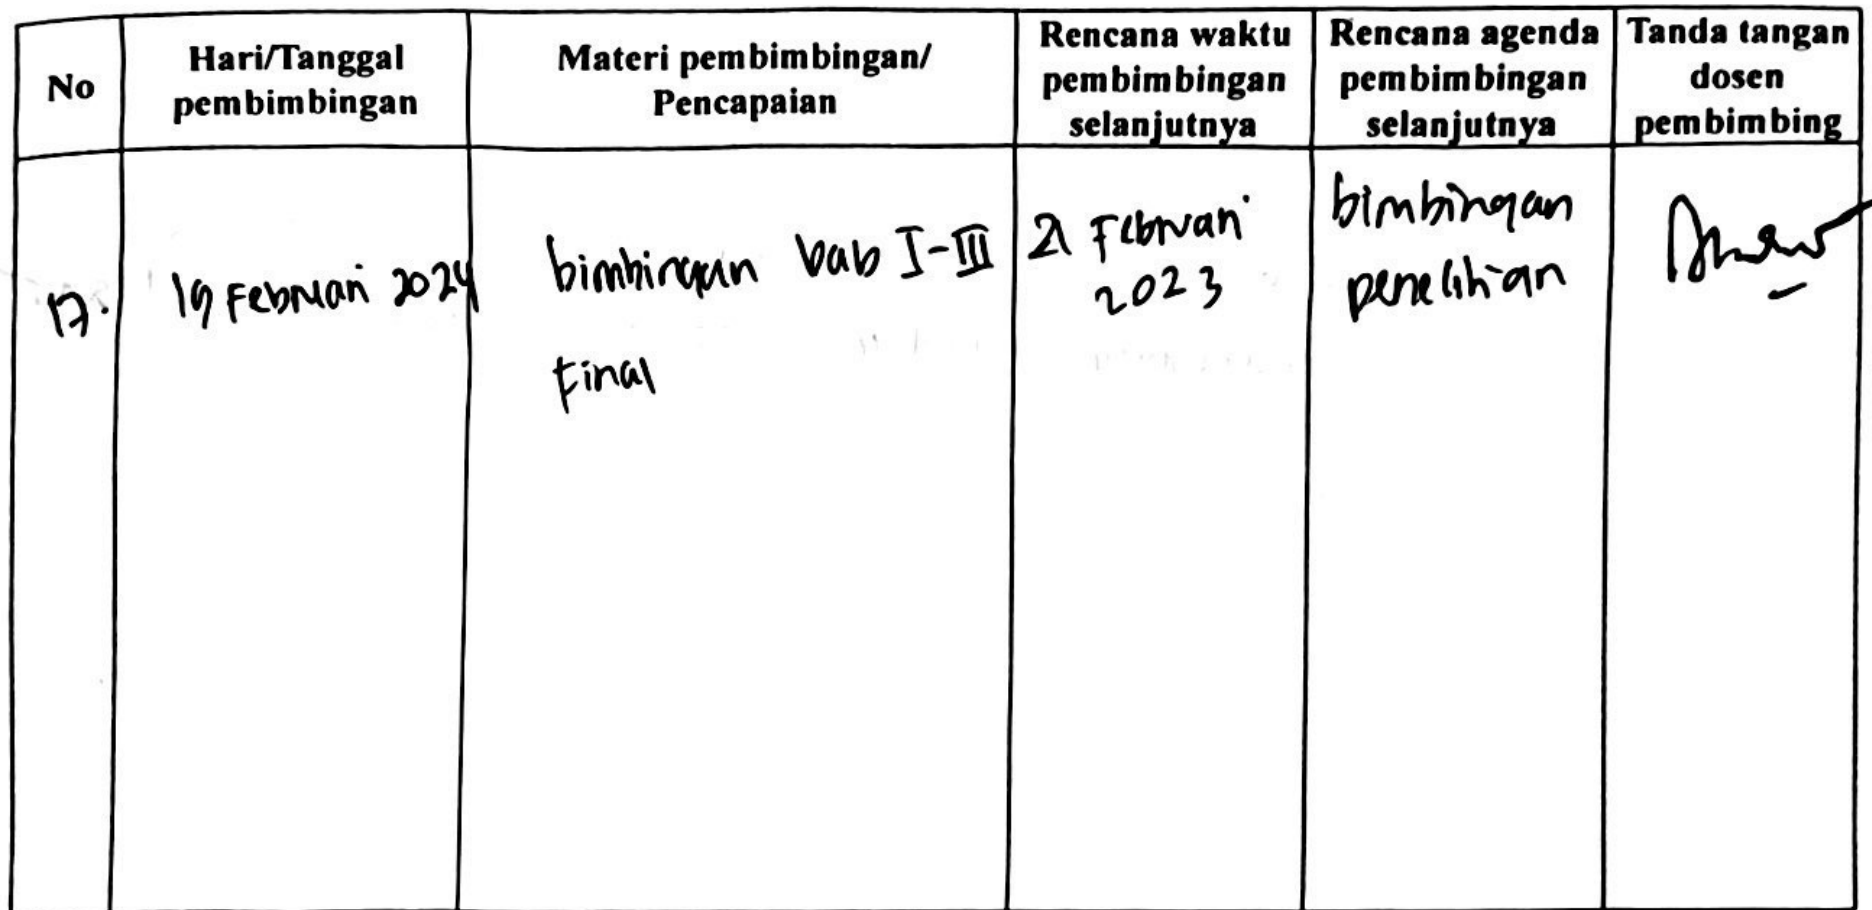 No
Hari/Tanggal
pembimbingan
Materi pembimbingan/
Pencapaian
Rencana waktu
pembimbingan
selanjutnya
Rencana agenda
pembimbingan
selanjutnya
Tanda tangan
dosen
pembimbing
17.
19 Februari 2024
bimbingan bab I-III
Final
21 Februari
2023
bimbingan
penelitian